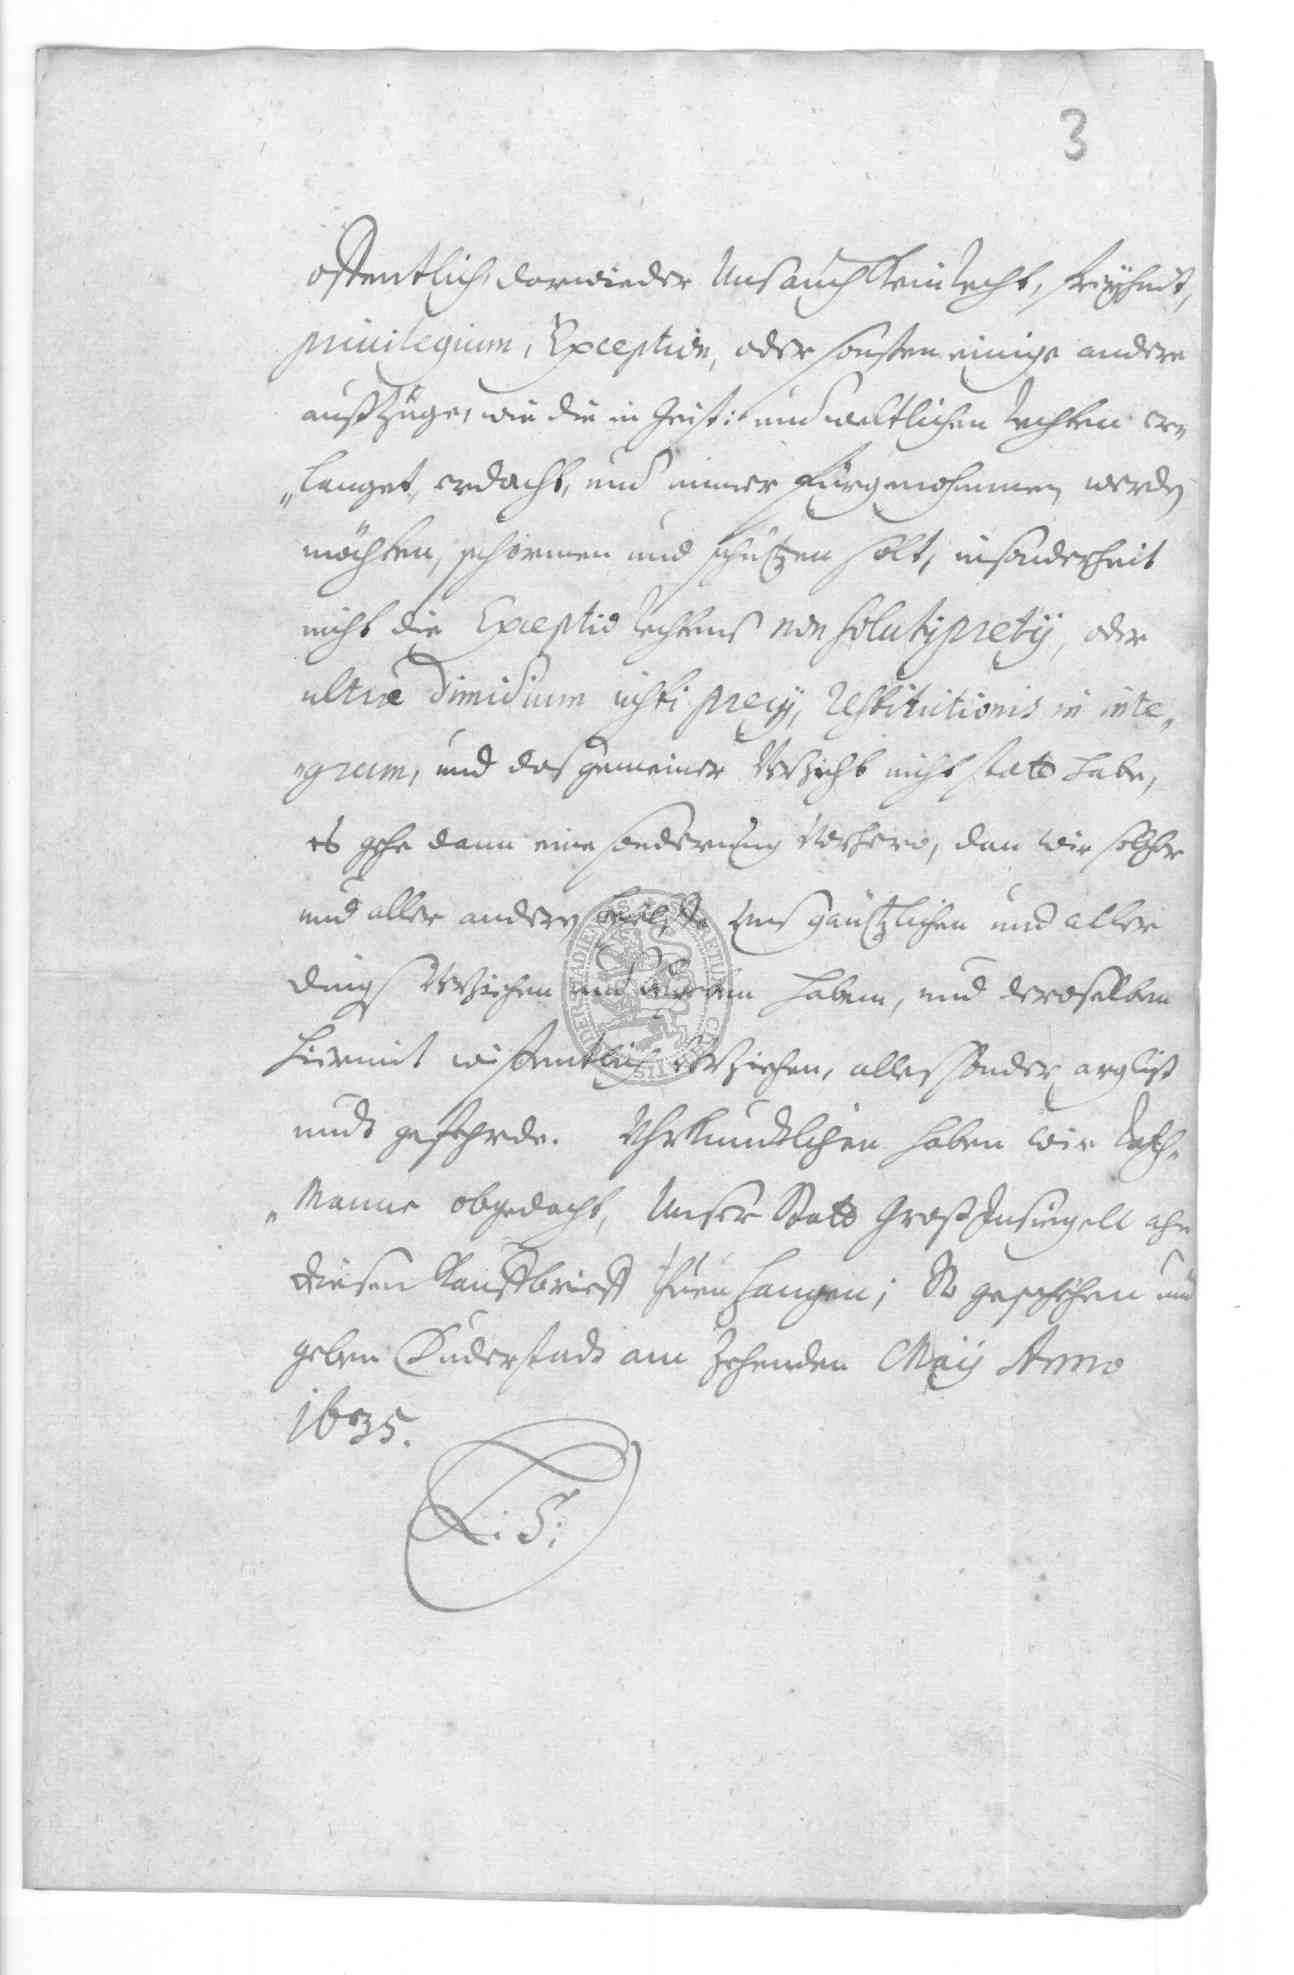 3
offentlich, darwieder Uns auch kein Recht, freyheit,
privilegium, Exception, oder sonsten einige andere
außzüge, wie die in Geist: und weltlichen Rechten er„
„langet, erdacht, und immer fürgenohmmen werden
möchten, schirmen und schützen solt, insonderheit
nicht die Exceptio Rechtens non soluti pretij, oder
ultra dimidium iusti precij, Restitutionis in inte„
„grum, und das gemeiner Verzicht nicht statt habe,
es gehe dann eine sonderung vorhero, dan wir solcher
und aller andern uns gäntzlichen und aller
dings Verziehen und haben, und deroselben
hiermit wissentlich Verziehen, alles sonder arglist
undt gefehrde. Uhrkundtlichen haben wir Rath„
„Manne obgedacht, Unser Statt Groß Insiegell ahn
diesen Kauffbrieff thuen hangen; So geschehen und
geben Duderstadt am Zehenden Maij Anno
1635.
L: S: